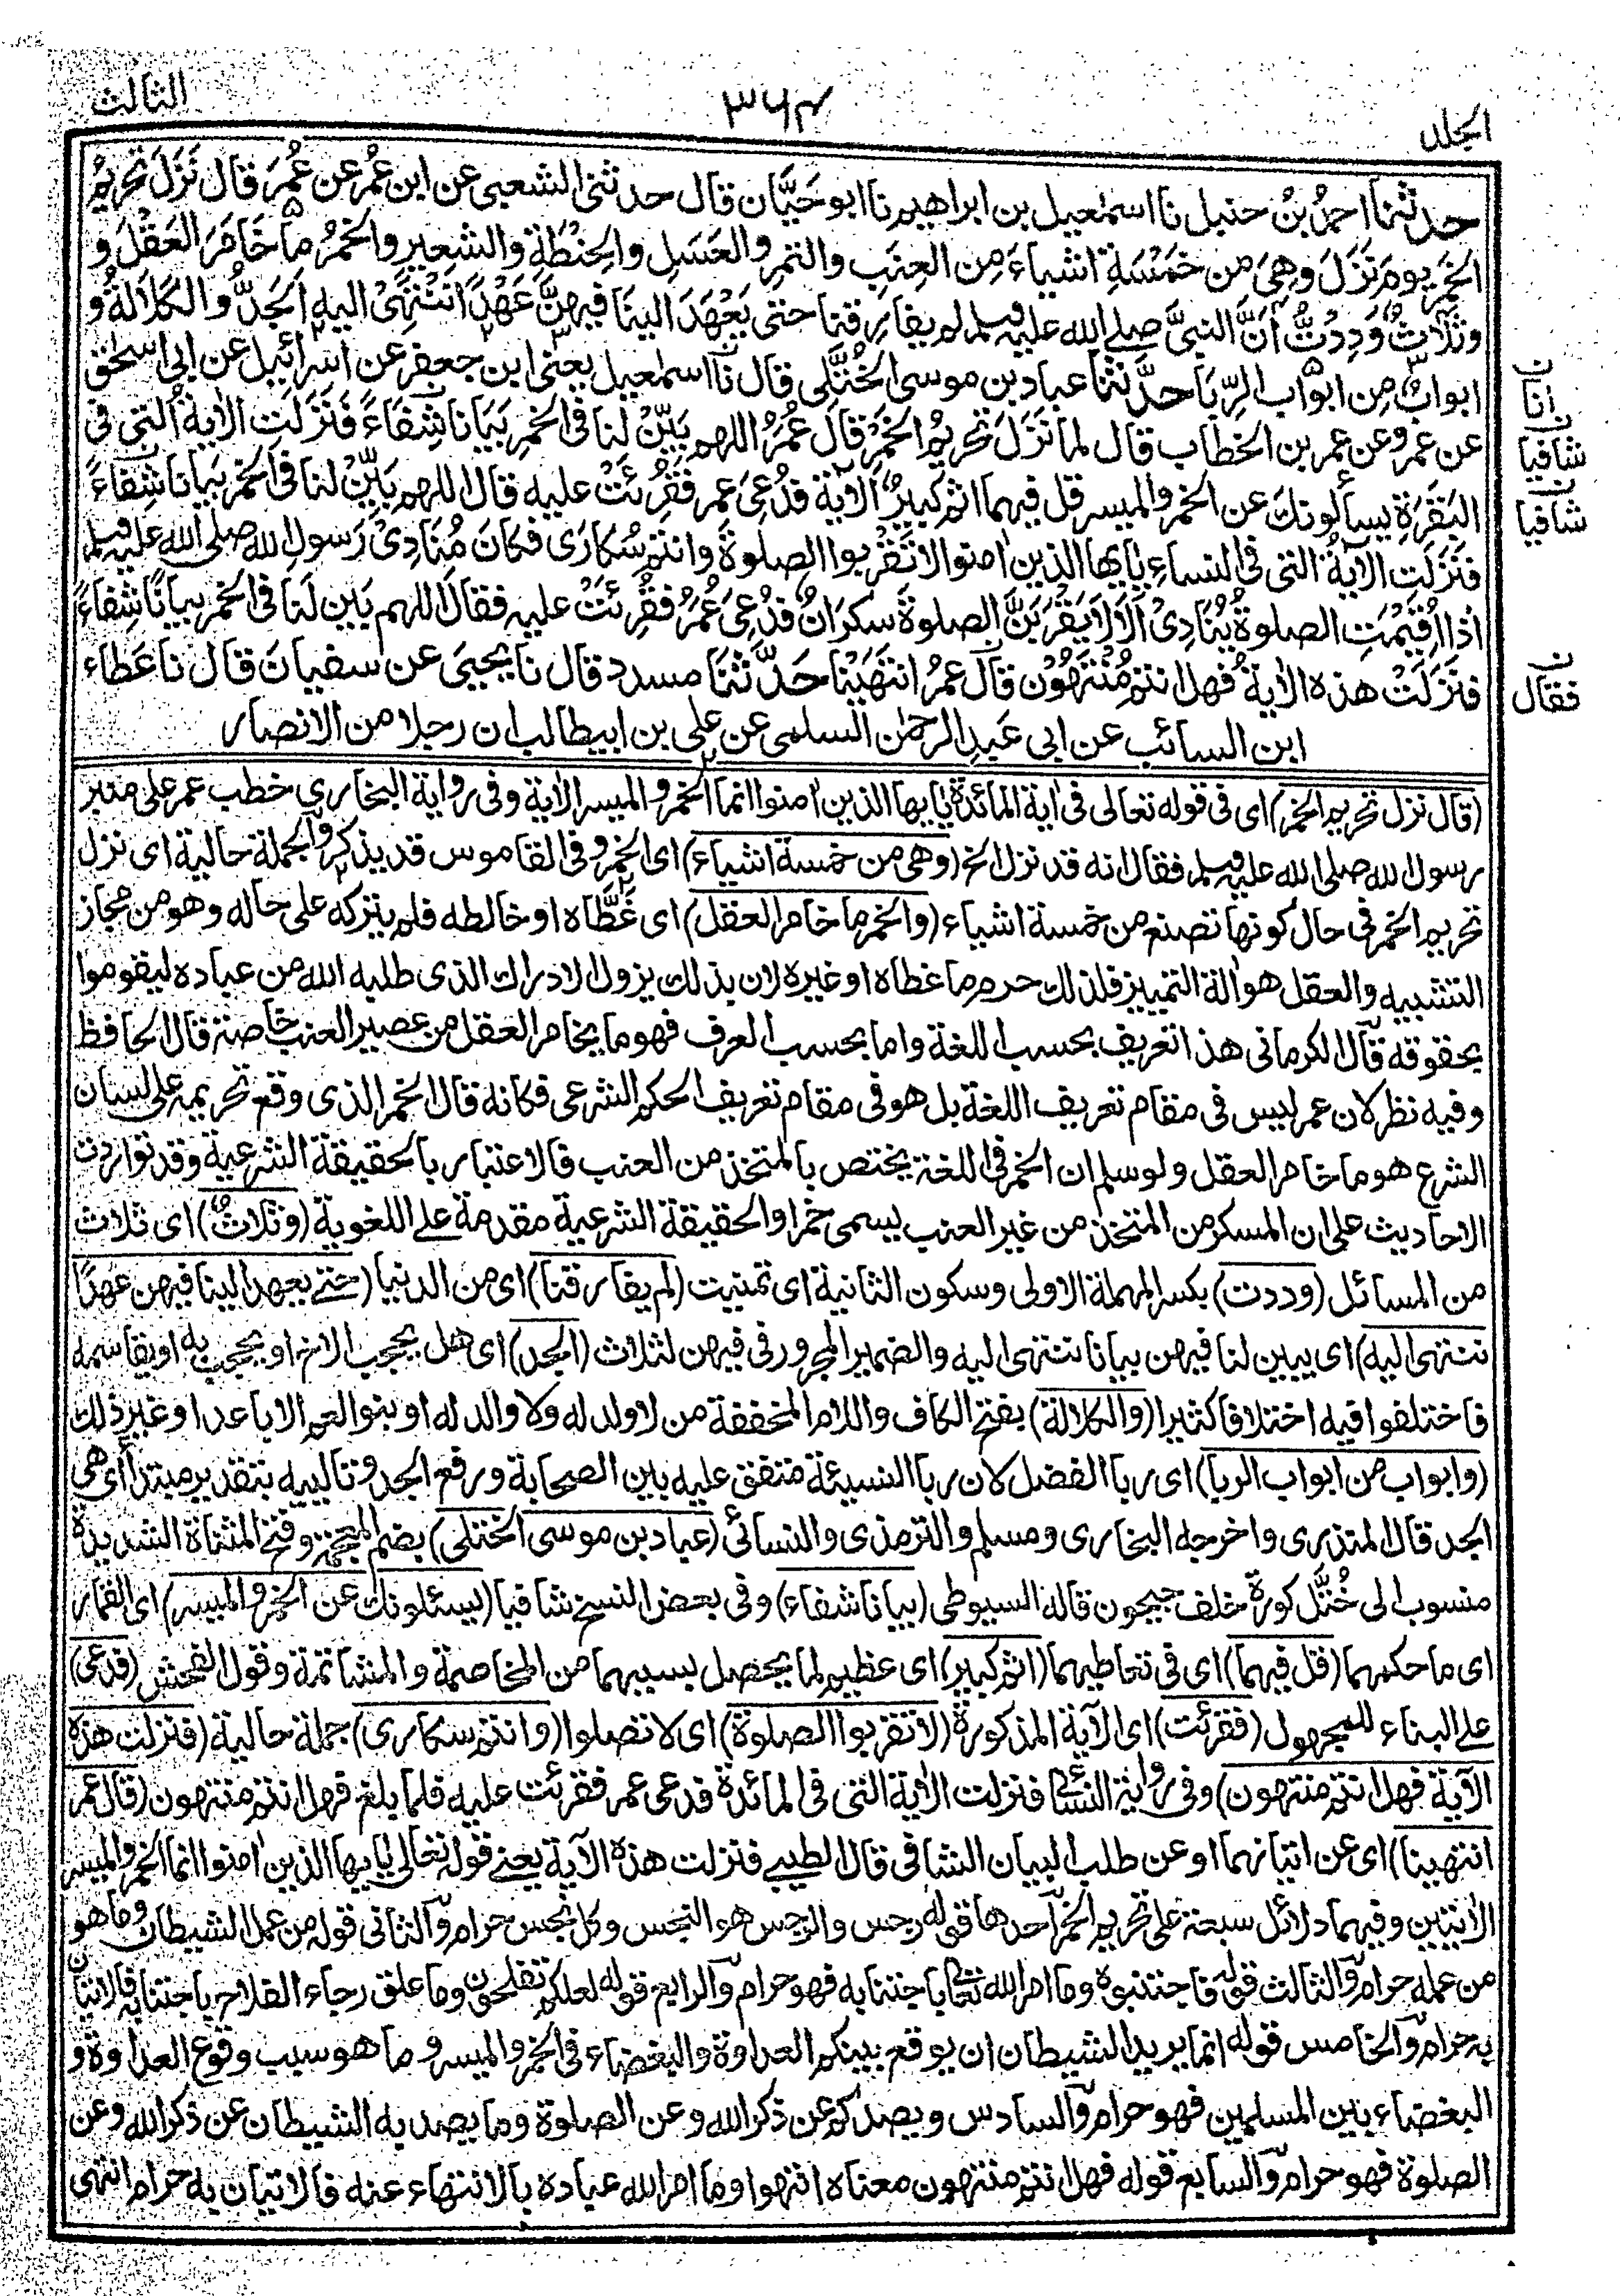 الجلد
٣٦٤
الثالث
حدثنا احمدُ بنُ حنبل نا اسمٰعيل بن ابراهيم نا ابو حَيَّان قال حدثنى الشعبى عن ابن عُمر عن عُمَرَ قال نَزَلَ تحريمُ
الخمر يومَ نَزَلَ وهِىَ من خَمْسَةِ اشياءَ مِن العِنَبِ والتمرِ والعَسَلِ والحِنْطةِ والشعيرِ والخمرُ ما خَامَرَ العَقْلَ و
وثلاثٌ وَدِدْتُّ اَنَّ النبىَّ صلے الله عليه وسلم لم يفارِقنا حتى يَعْهَدَ الينا فيهنَّ عَهْدًا نَنْتَهِىْ اليه الجَدُّ والكلالةُ و
ابوابٌ مِن ابواب الرِّبَا حدَّثَنا عباد بن موسى الخُتَّلى قال نا اسمٰعيل يعنى ابن جعفر عن اسرائيل عن ابى اسحٰق
عن عمرو عن عمر بن الخطاب قال لما نَزَلَ تحريمُ الخمرُ قال عُمَرُ اللهم بَيِّنْ لنا فى الخمرِ بَيَانا شِفَاءً فَنَزَلَتِ الاٰيةُ التى فى
البَقَرَةِ يسألونك عن الخمر والميسر قل فيهما اثم كبيرٌ الاٰيةَ فدُعِىَ عمر فقُرِئَتْ عليه قال اللهم بَيِّنْ لنا فى الخمر بيانا شِفاءً
فنزلتِ الاٰيةُ التى فى النساءِ يٰايها الذين اٰمنوا لا تَقْرَبوا الصلوةَ وانتم سُكارَى فكانَ مُنَادِىْ رَسولِ الله صلى الله عليه وسلم
اذا اُقِيْمَتِ الصلوةُ يُنَادِىْ اَلَا لَا يَقْرَبَنَّ الصلوةَ سكرَانُ فدُعِىَ عُمَرُ فقُرِئَتْ عليه فقال اللهم بَيِّن لَنَا فى الخمر بيانًا شِفاءً
فنَزَلَتْ هذه الاٰيةُ فهل انتم مُنْتَهُوْن قال عمرُ انتَهَيْنا حَدَّثَنا مسدد قال نا يحيى عن سفيانَ قال نا عَطاء
ابن السائب عن ابى عبدِ الرحمٰن السلمى عن على بن ابيطالب ان رجلا من الانصار
ن
انا
ن
شافيا
ن
شافيا
ن
فقال
(قال نزل تحريم الخمر) اى فى قوله تعالى فى اٰية المائدة يٰايها الذين اٰمنوا انما الخمر والميسر الاٰية وفى رواية البخارى خطب عمر على منبر
رسول الله صلى الله عليه وسلم فقال انه قد نزل الخ (وهى من خمسة اشياء) اى الخمر وفى القاموس قد يذكر والجملة حالية اى نزل
تحريم الخمر فى حال كونها تصنع من خمسة اشياء (والخمر ما خامر العقل) اى غَطَّاه او خالطه فلم يتركه على حاله وهو من مجاز
التشبيه والعقل هو اٰلة التمييز فلذلك حرم ما غطاه او غيره لان بذلك يزول الادراك الذى طلبه الله من عباده ليقوموا
بحقوقه قال الكرمانى هذا تعريف بحسب اللغة واما بحسب العرف فهو ما يخامر العقل من عصير العنب خاصة قال الحافظ
وفيه نظر لان عمر ليس فى مقام تعريف اللغة بل هو فى مقام تعريف الحكم الشرعى فكانه قال الخمر الذى وقع تحريمه على لسان
الشرع هو ما خامر العقل ولو سلم ان الخمر فى اللغة يختص بالمتخذ من العنب فالاعتبار بالحقيقة الشرعية وقد تواردت
الاحاديث على ان المسكر من المتخذ من غير العنب يسمى خمرا والحقيقة الشرعية مقدمة على اللغوية (وثلاثٌ) اى ثلاث
من المسائل (وددت) بكسر المهملة الاولى وسكون الثانية اى تمنيت (لم يفارقنا) اى من الدنيا (حتے يعهد الينا فيهن عهدًا
ننتهى اليه) اى يبين لنا فيهن بيانا ننتهى اليه والضمير المجرور فى فيهن لثلاث (الجد) اى هل يحجب الاخ او يحجب به او يقاسمه
فاختلفوا فيه اختلافا كثيرا (والكلالة) بفتح الكاف واللام المخففة من لا ولد له ولا والد له او بنو العم الاباعد او غير ذلك
(وابواب من ابواب الربا) اى ربا الفضل لان ربا النسيئة متفق عليه بين الصحابة ورفع الجد وتالييه بتقدير مبتدأ اى هى
الجد قال المنذرى واخرجه البخارى ومسلم والترمذى والنسائى (عباد بن موسى الختلى) بضم المعجمة وفتح المثناة الشديدة
منسوب الى خُتَّل كورة خلف جيحون قاله السيوطى (بيانا شفاء) وفى بعض النسخ شافيا (يسئلونك عن الخمر والميسر) اى القمار
اى ما حكمهما (قل فيهما) اى فى تعاطيهما (اثم كبير) اى عظيم لما يحصل بسببهما من المخاصمة والمشاتمة وقول الفحش (فدعى)
على البناء للمجهول (فقرئت) اى الاٰية المذكورة (لا تقربوا الصلوة) اى لا تصلوا (وانتم سكارى) جملة حالية (فنزلت هذه
الاٰية فهل انتم منتهون) وفى رواية النسائى فنزلت الاٰية التى فى المائدة فدعى عمر فقرئت عليه فلما بلغ فهل انتم منتهون (قال عمر
انتهينا) اى عن اتيانهما او عن طلب البيان الشافى قال الطيبى فنزلت هذه الاٰية يعنے قوله تعالى يٰايها الذين اٰمنوا انما الخمر والميسر
الاٰيتين وفيهما دلائل سبعة على تحريم الخمر احدها قوله رجس والرجس هو النجس وكل نجس حرام والثانى قوله من عمل الشيطان وما هو
من عمله حرام والثالث قوله فاجتنبوه وما امر الله تعالى باجتنابه فهو حرام والرابع قوله لعلكم تفلحون وما علق رجاء الفلاح باجتنابه فالاتيان
به حرام والخامس قوله انما يريد الشيطان ان يوقع بينكم العداوة والبغضاء فى الخمر والميسر وما هو سبب وقوع العداوة و
البغضاء بين المسلمين فهو حرام والسادس ويصدكم عن ذكر الله وعن الصلوة وما يصد به الشيطان عن ذكر الله وعن
الصلوة فهو حرام والسابع قوله فهل انتم منتهون معناه انتهوا وما امر الله عباده بالانتهاء عنه فالاتيان به حرام انتهى